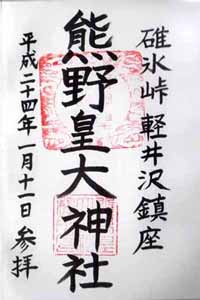 碓氷峠 軽井沢鎮座
熊野皇大神社
平成二十四年一月十一日 参拝